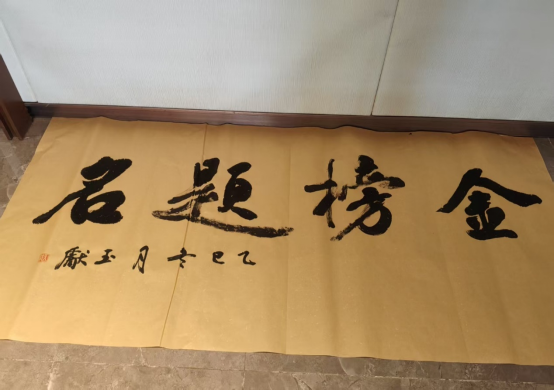 金榜题名
乙巳冬月玉献